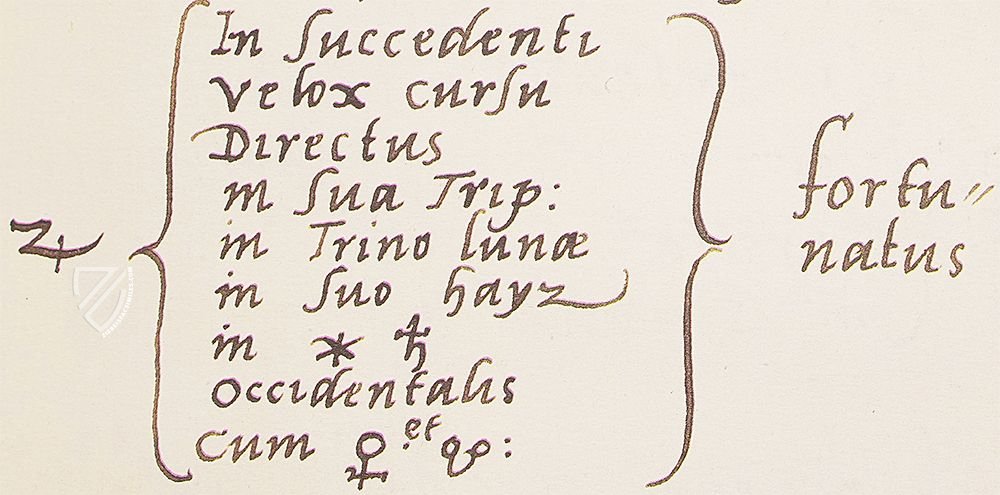 ♃
In succedenti
velox cursu
Directus
in sua Trip:
in Trino lunæ
in suo hayz
in ⚹ ♄
occidentalis
cum ♀ et ☋:
fortu〃
natus